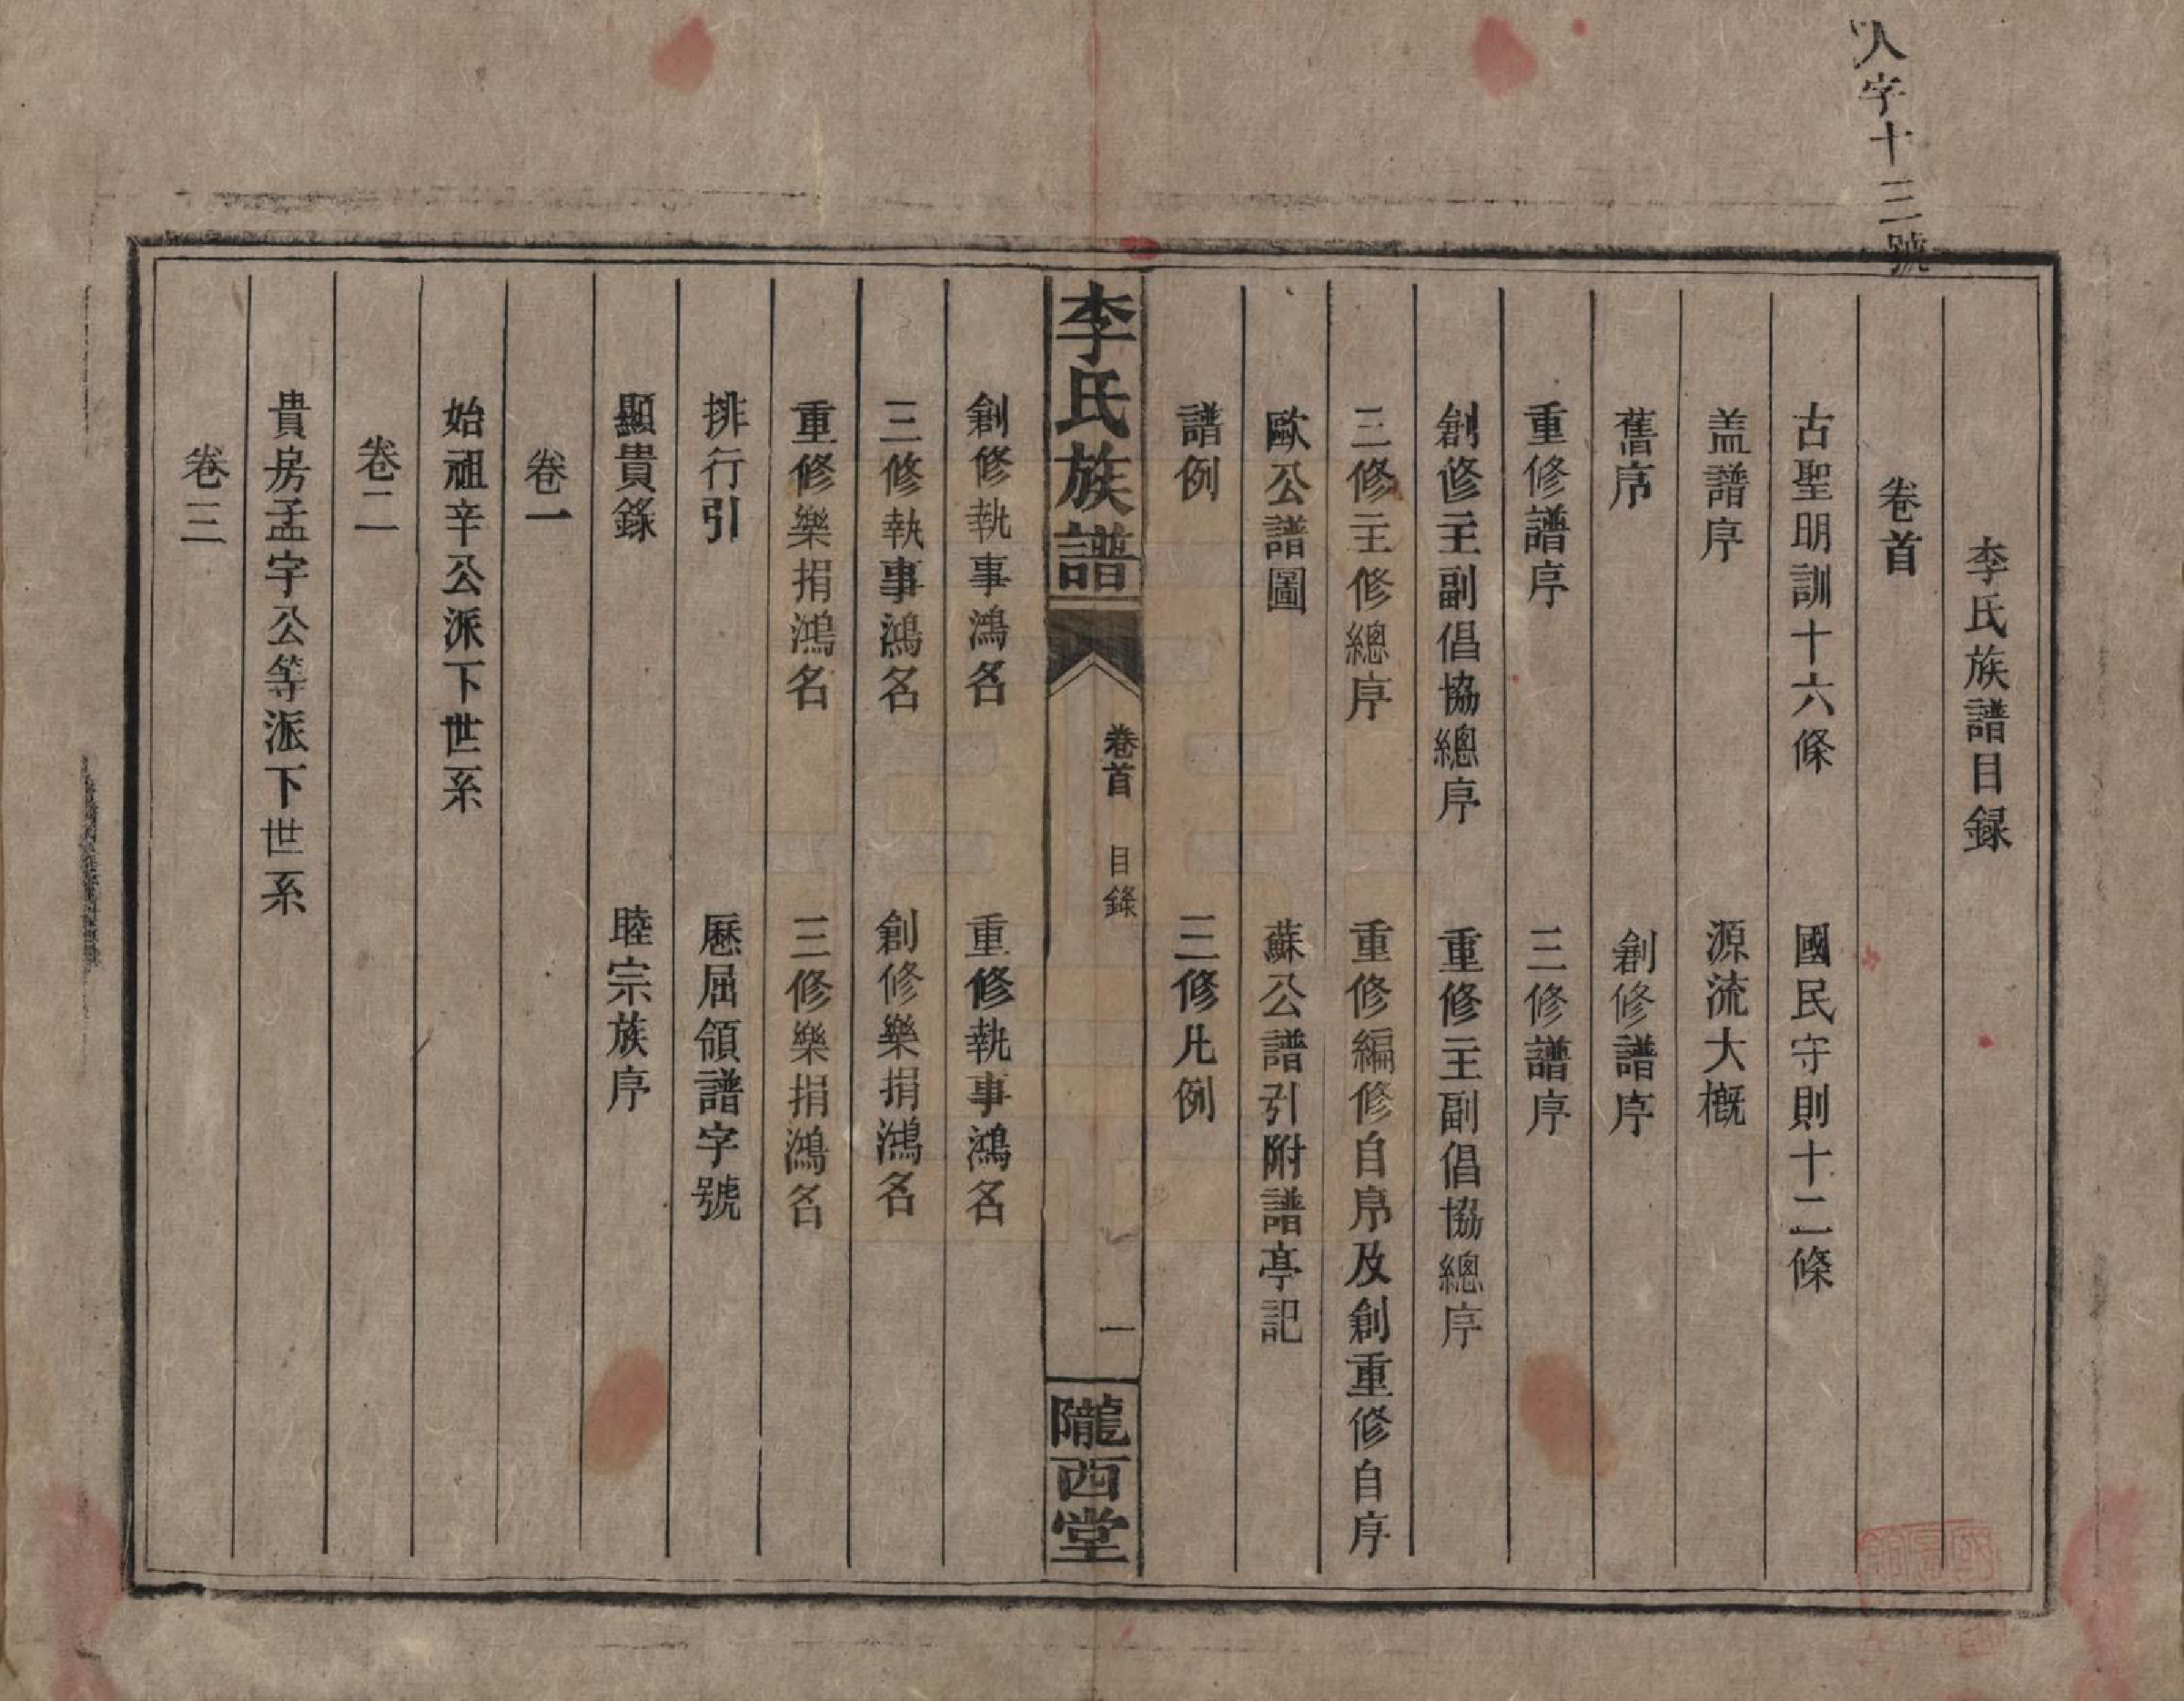 人字十三號
李氏族譜目録
卷首
古聖明訓十六條　國民守則十二條
盖譜序　源流大概
舊序　創修譜序
重修譜序　三修譜序
創修主副倡協總序　重修主副倡協總序
三修主修總序　重修編修自序及創重修自序
歐公譜圖　蘇公譜引附譜亭記
譜例　三修凡例
李氏族譜　卷首　目錄　一　隴西堂
創修執事鴻名　重修執事鴻名
三修執事鴻名　創修樂捐鴻名
重修樂捐鴻名　三修樂捐鴻名
排行引　歷屆領譜字號
顯貴錄　睦宗族序
卷一
始祖辛公派下世系
卷二
貴房孟字公等派下世系
卷三